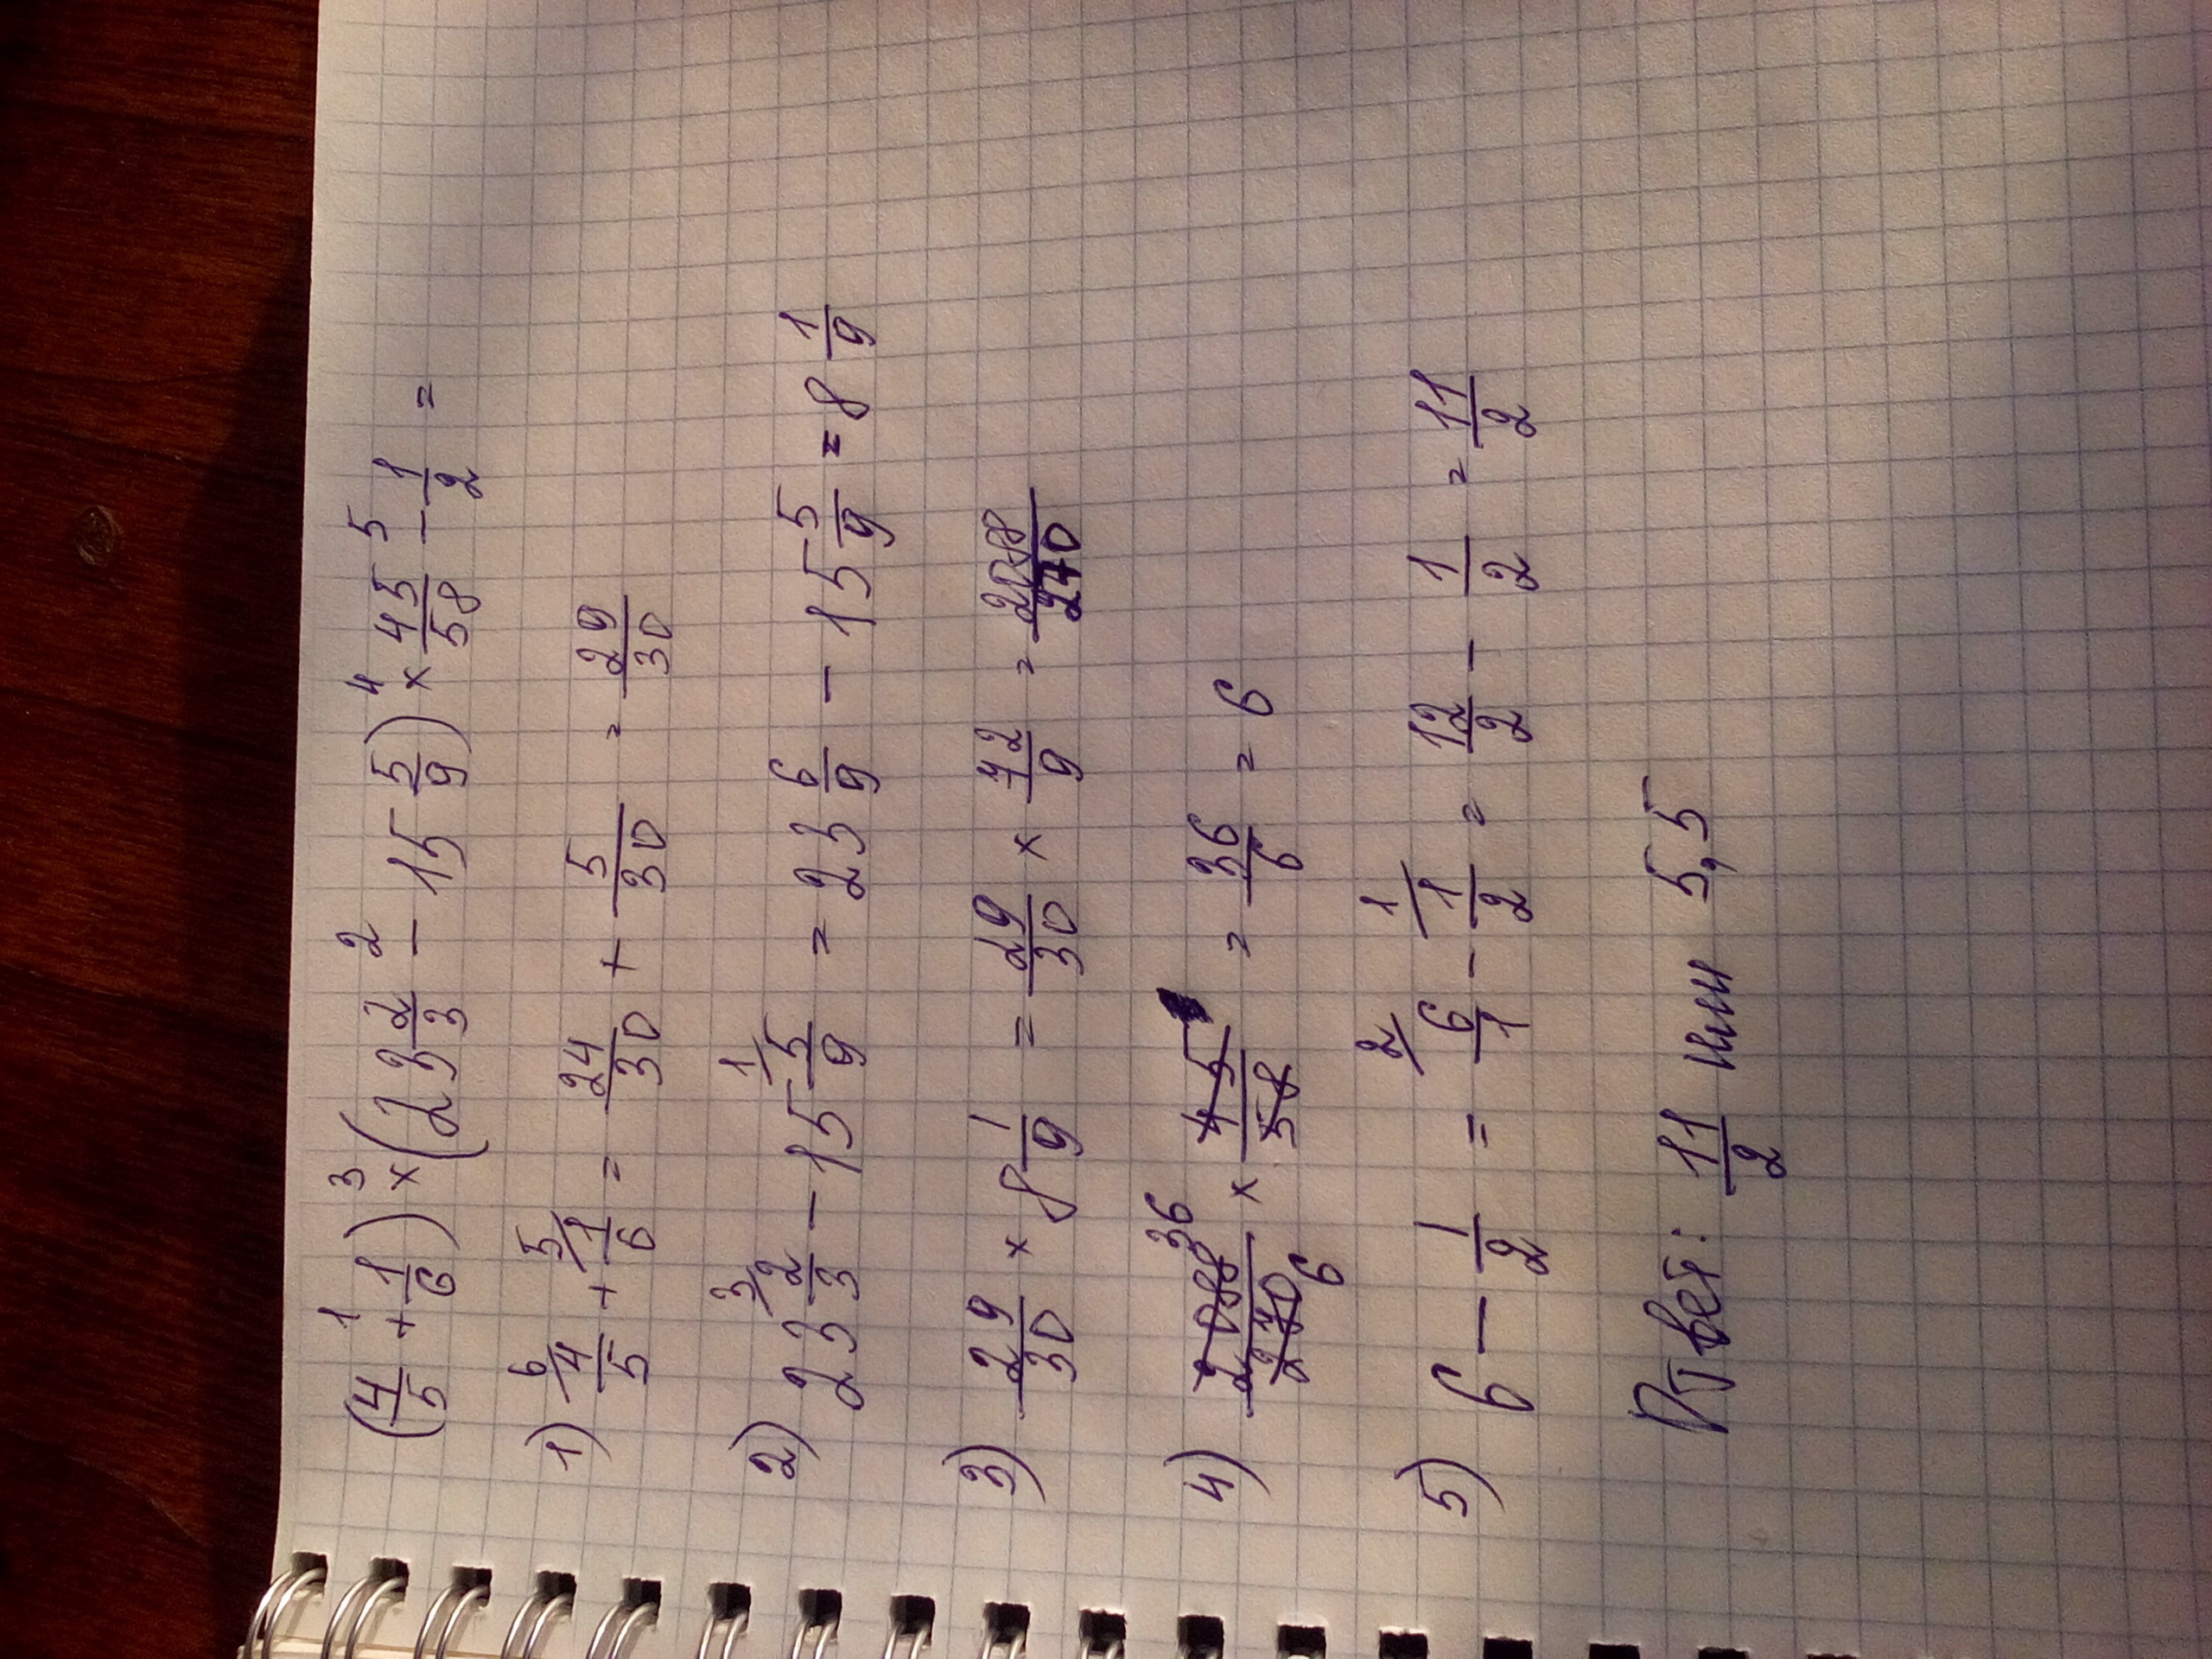 (4/5 +¹ 1/6) ×³ (23 2/3 −² 15 5/9) ×⁴ 45/58 −⁵ 1/2 =
1) ⁶/4/5 + ⁵/1/6 = 24/30 + 5/30 = 29/30
2) 23 ³/2/3 − 15 ¹/5/9 = 23 6/9 − 15 5/9 = 8 1/9
3) 29/30 × 8 1/9 = 29/30 × 72/9 = 2088/270
4) 2088/270 36/6 × 45/58 = 36/6 = 6
5) 6 − 1/2 = ²/6/1 − ¹/1/2 = 12/2 − 1/2 = 11/2
Ответ: 11/2 или 5,5